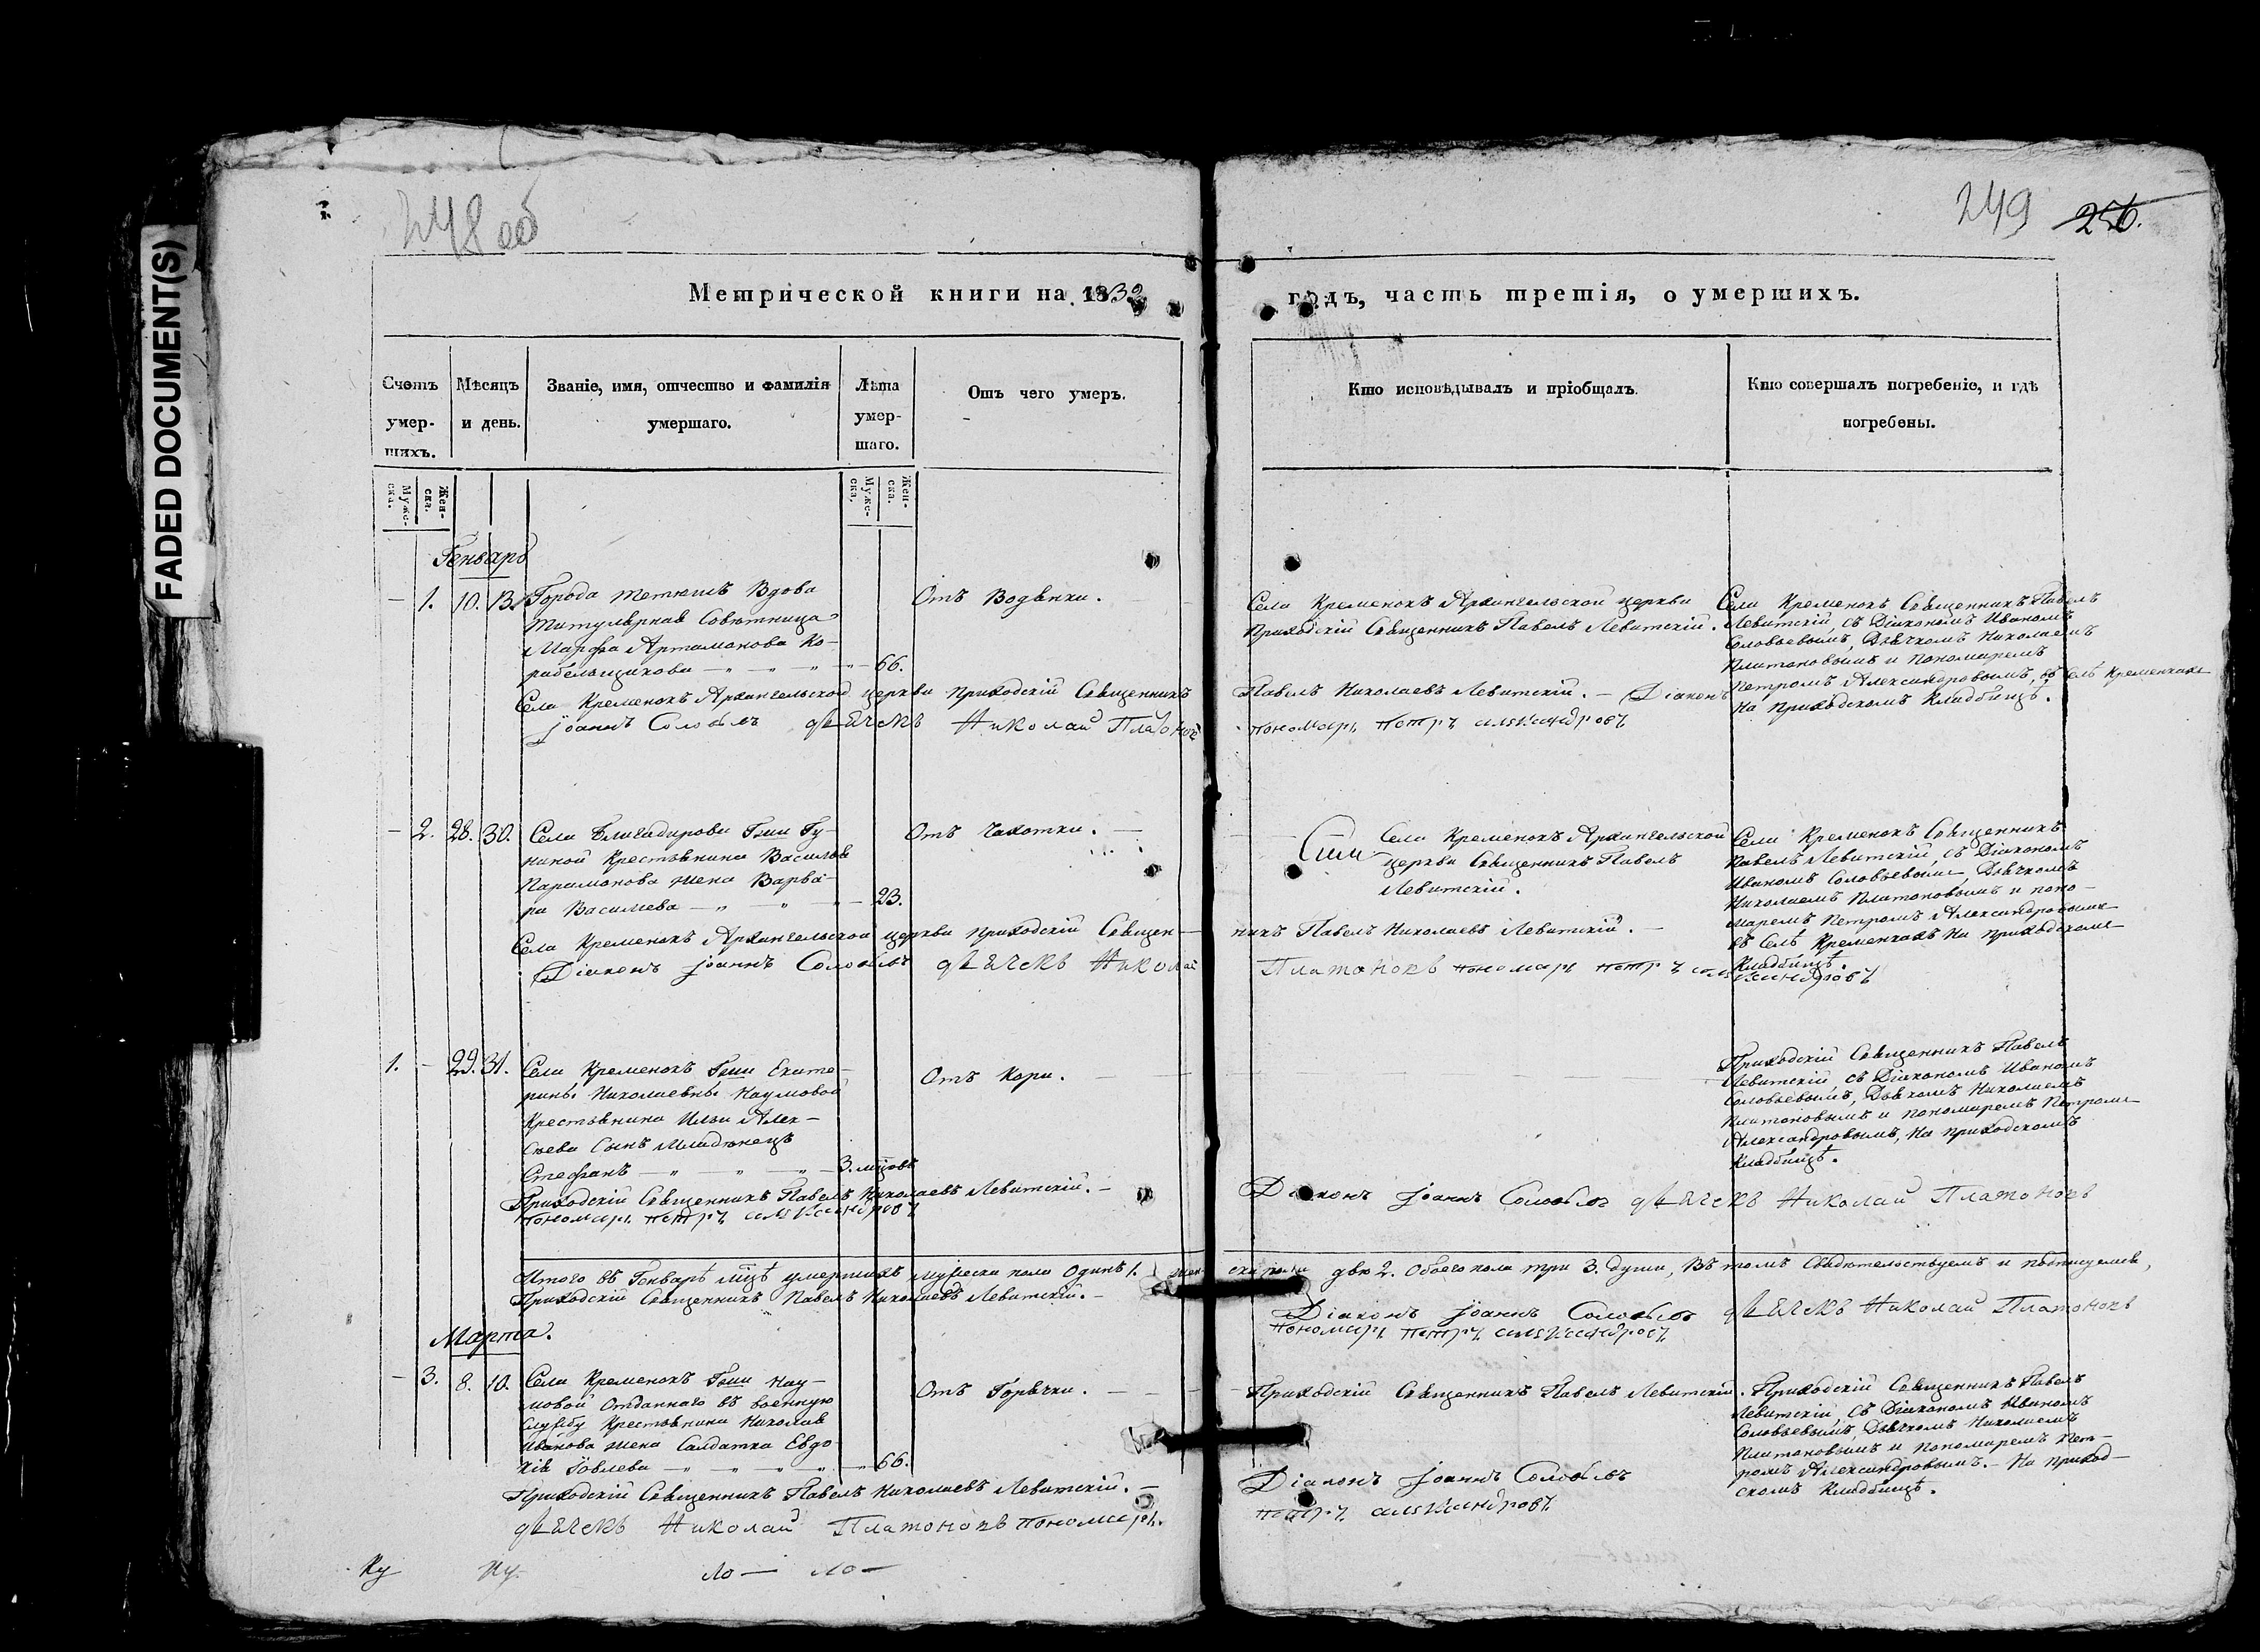 FADED DOCUMENT(S)
248 об
249 256.
Метрической книги на 1832
годъ, часть третія, о умершихъ.
Счетъ умер-шихъ.
Мѣсяцъ и день.
Званіе, имя, отчество и фамилія умершаго.
Лѣта умер-шаго.
Отъ чего умеръ.
Кто исповѣдывалъ и пріобщалъ.
Кто совершалъ погребеніе, и гдѣ погребены.
Муже-ска.
Жен-ска.
Муже-ска,
Жен-ска.
Генварь
— 1. 10. 13. Города Вдова
Титулярная Совѣтница
Марфа Артамонова Ко-
рабельщикова — „ — „ — „ — 66.
Отъ Водянки.
Села Кременокъ Архангельской церкви
Приходскій Священникъ Павелъ Левитскій.
Села Кременокъ Священникъ Павелъ
Левитскій, съ Діакономъ Иваномъ
Соловьевымъ, Дьячкомъ Николаемъ
Платоновымъ и Пономаремъ
Петромъ Александровымъ, въ Селѣ Кременкахъ
На приходскомъ Кладбищѣ.
Села Кременокъ Архангельской церкви Приходскій Священникъ
Павелъ Николаевъ Левитскій. — Діаконъ
Іоаннъ Соловьевъ дьячекъ Николай Платоновъ
пономарь Петръ Александровъ
— 2. 28. 30. Села Гжи Гу-
ниной Крестьянина Василья
Парамонова жена Варва-
ра Васильева — „ — „ — 23.
Отъ Чахотки.
Села Кременокъ Архангельской
церкви Священникъ Павелъ
Левитскій.
Села Кременокъ Священникъ
Павелъ Левитскій, съ Діакономъ
Иваномъ Соловьевымъ, Дьячкомъ
Николаемъ Платоновымъ и поно-
маремъ Петромъ Александровымъ
въ Селѣ Кременкахъ На приходскомъ
Кладбищѣ.
Села Кременокъ Архангельской церкви приходскій Священ-
никъ Павелъ Николаевъ Левитскій. —
Діаконъ Іоаннъ Соловьевъ дьячекъ Николай
Платоновъ пономарь Петръ Александровъ
1. — 29. 31. Села Кременокъ Гжи Екате-
рины Николаевны Наумовой
Крестьянина Ильи Алек-
сѣева Сынъ Младѣнецъ
Стефанъ — „ — „ — „ — 3. мцовъ
Отъ Кори.
Приходскій Священникъ Павелъ
Левитскій, съ Діакономъ Иваномъ
Соловьевымъ, Дьячкомъ Николаемъ
Платоновымъ и пономаремъ Петромъ
Александровымъ, На приходскомъ
Кладбищѣ.
Приходскій Священникъ Павелъ Николаевъ Левитскій. —
Діаконъ Іоаннъ Соловьевъ дьячекъ Николай Платоновъ
пономарь Петръ Александровъ
Итого въ Генварѣ мцѣ умершихъ мужеска пола Одинъ 1. жен-
ска пола двѣ 2. Обоего пола три 3. души, Въ томъ Свидѣтельствуемъ и подписуемся,
Приходскій Священникъ Павелъ Николаевъ Левитскій. —
Діаконъ Іоаннъ Соловьевъ дьячекъ Николай Платоновъ
пономарь Петръ Александровъ
Марта.
— 3. 8. 10. Села Кременокъ Гжи Нау-
мовой Отданнаго въ военную
Службу Крестьянина Николая
Иванова жена Салдатка Евдо-
кія Іовлева — „ — „ — „ — 66.
Отъ Горячки.
Приходскій Священникъ Павелъ Левитскій.
Приходскій Священникъ Павелъ
Левитскій, съ Діакономъ Иваномъ
Соловьевымъ, Дьячкомъ Николаемъ
Платоновымъ и Пономаремъ Пет-
ромъ Александровымъ. — На приход-
скомъ Кладбищѣ.
Приходскій Священникъ Павелъ Николаевъ Левитскій. —
Діаконъ Іоаннъ Соловьевъ
дьячекъ Николай Платоновъ пономарь
Петръ Александровъ